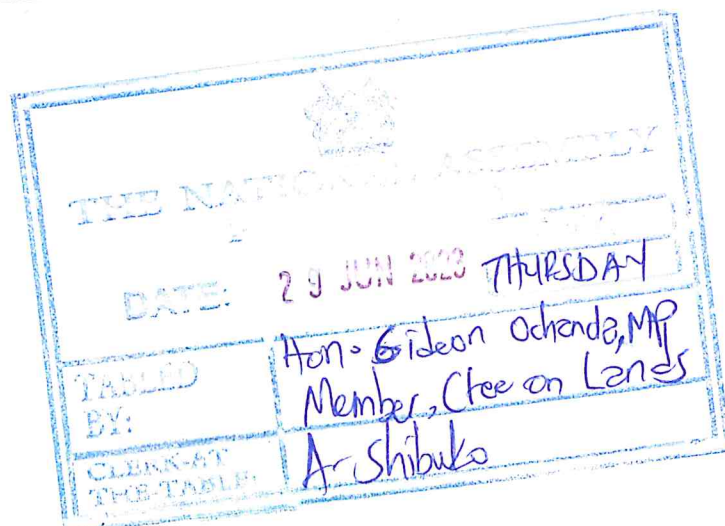 THE NATIONAL ASSEMBLY
DATE: 29 JUN 2023 THURSDAY
TABLED BY:
Hon. Gideon Ochanda, MP
Member, Ctee on Lands
CLERK-AT THE-TABLE:
A. Shibuko